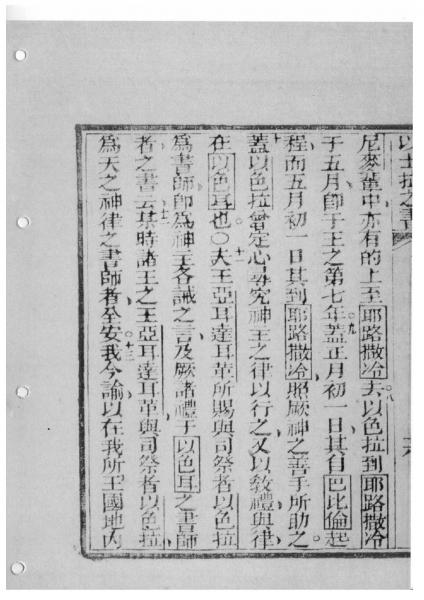 以士拉之書
尼麥輩中亦有的上至耶路撒冷去以色拉到耶路撒冷
于五月即于王之第七年蓋正月初一日其自巴比倫起
程而五月初一日其到耶路撒冷照厥神之善手所助之
蓋以色拉曾定心尋究神王之律以行之又以敎禮與律
在以色耳也○大王亞耳達耳革所賜與司祭者以色拉
爲書師即爲神王各誡之言及厥諸禮于以色耳之書師
者之書云某時諸王之王亞耳達耳革與司祭者以色拉
爲天之神律之書師者全安我今諭以在我所王國地內